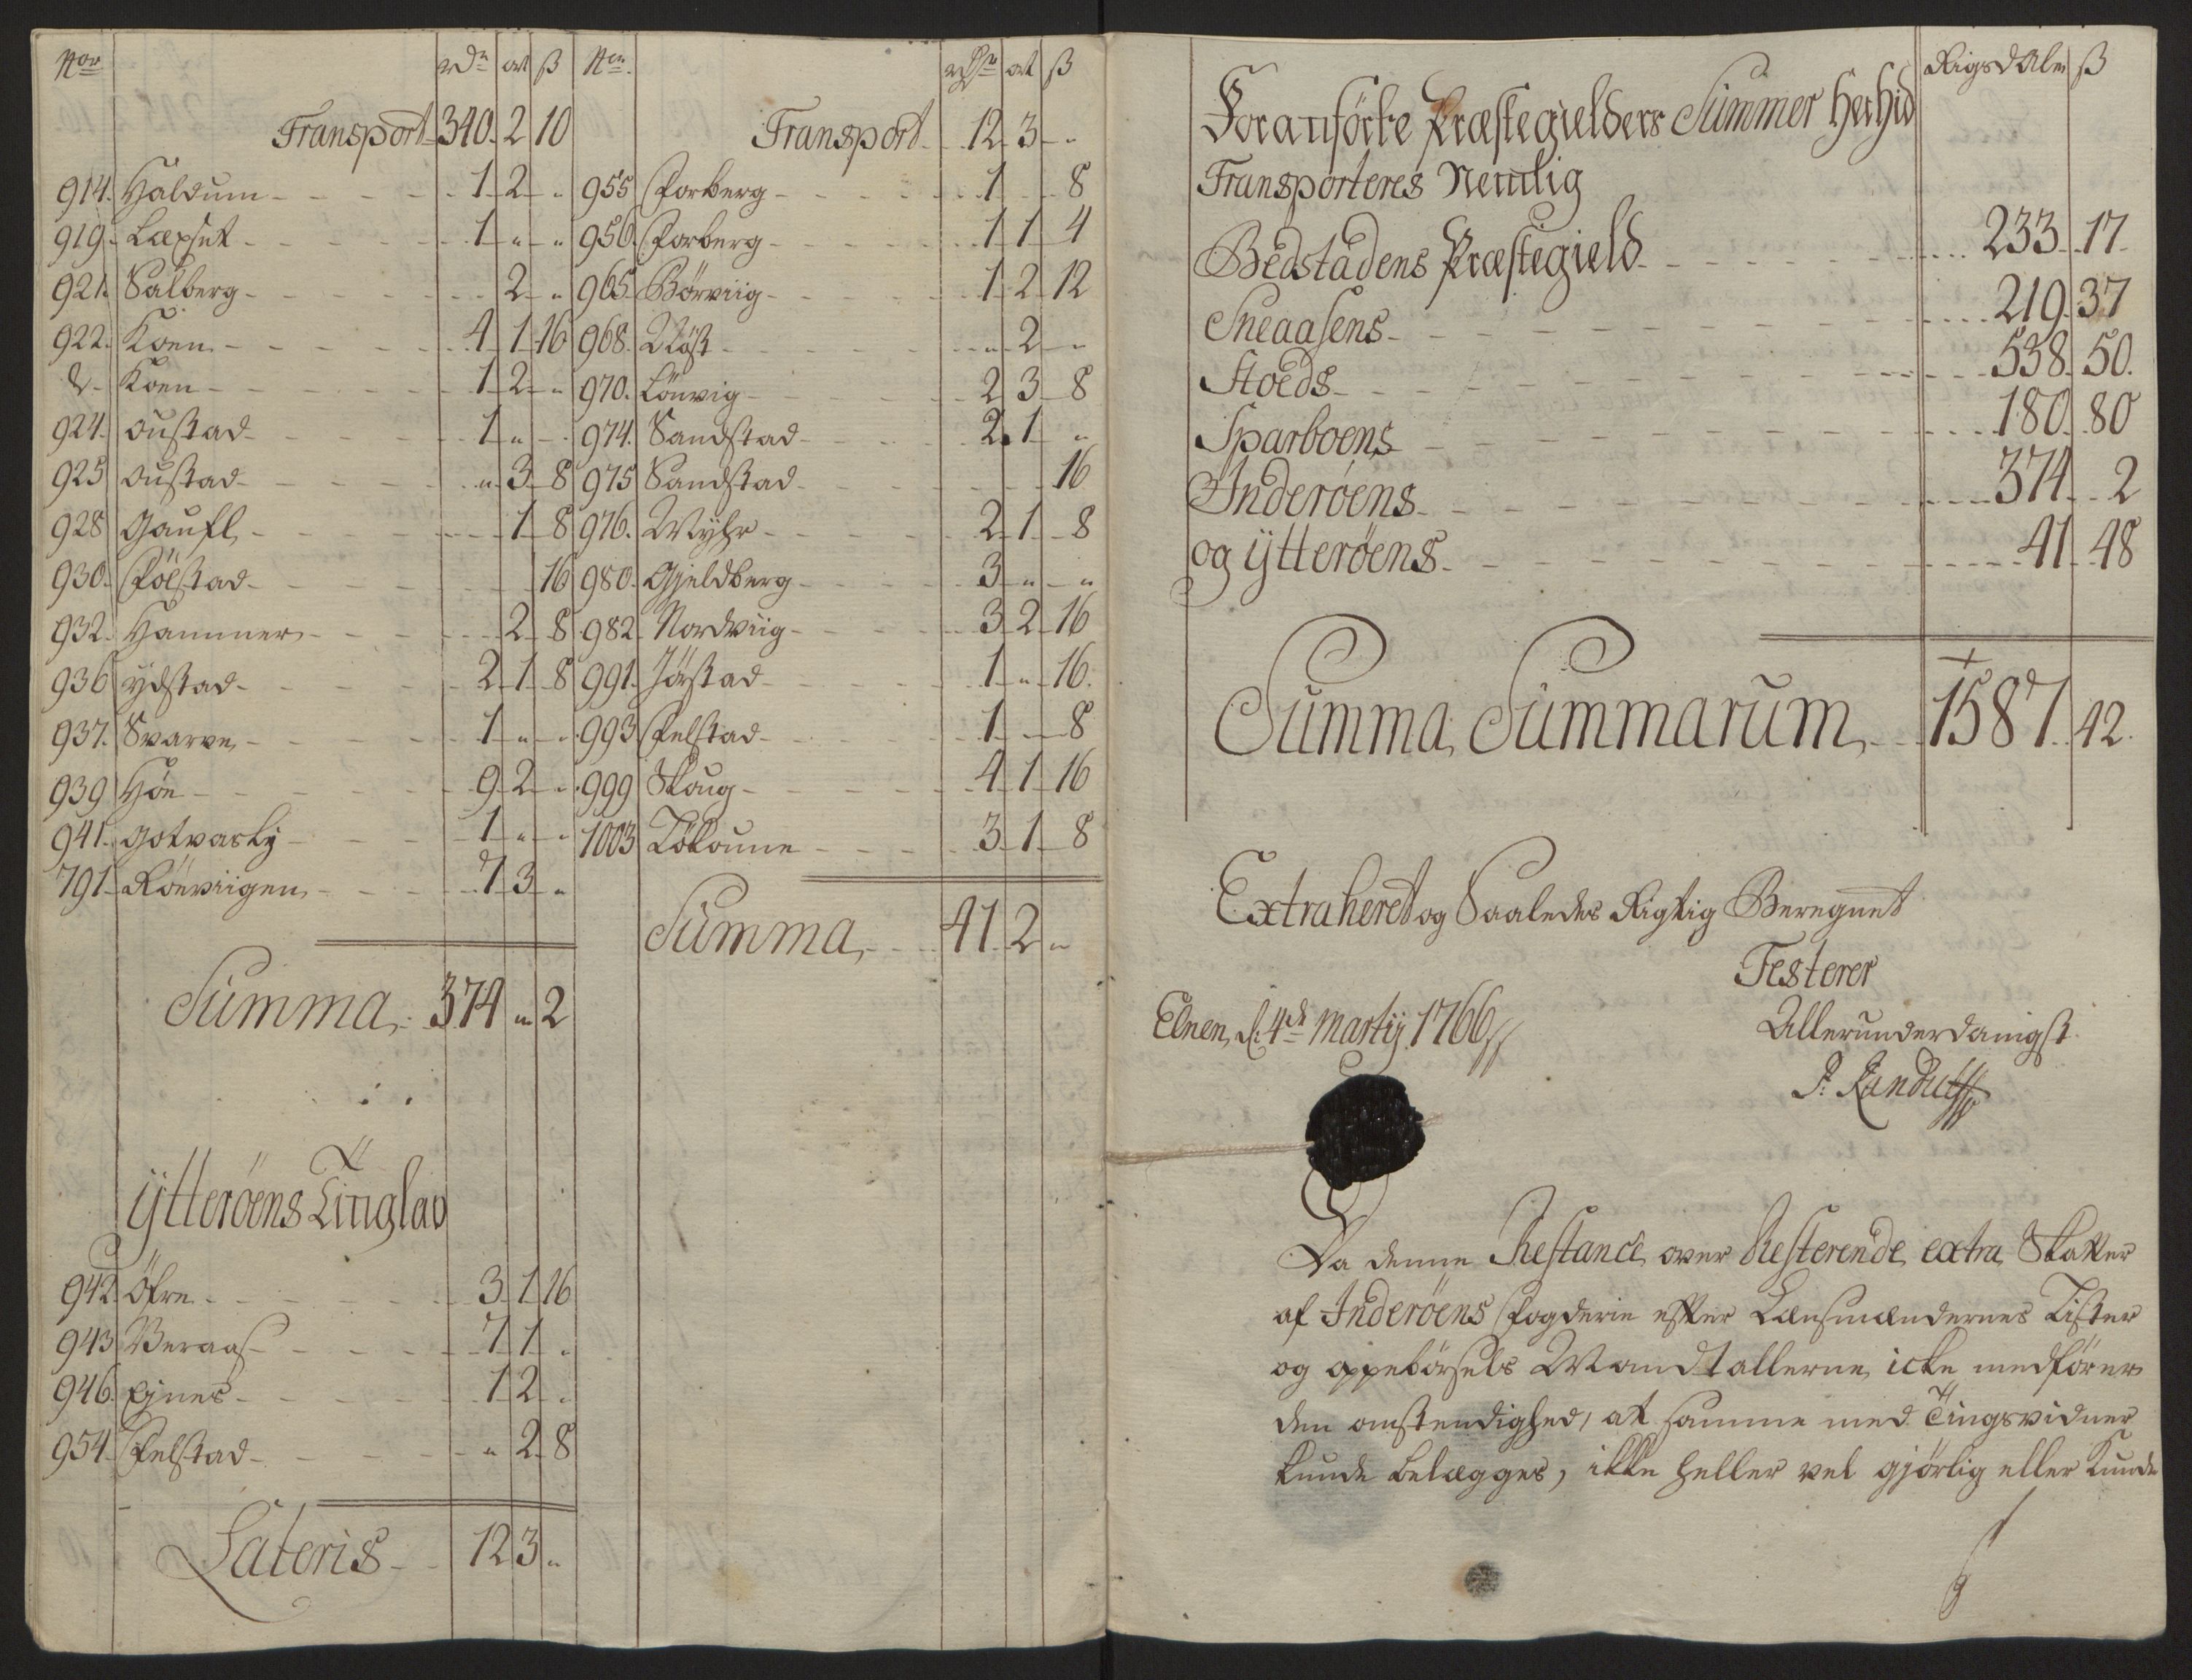 Nor rdr ort ß
Transport 340. 2 10
914. Haldum 1 2 "
919. Læxset 1 " "
921. Salberg 2 "
922. Koen 4 1 16
d Koen 1 2 "
924. oustad 1 " "
925 oustad " 3 8
928 Gaufl 1 8
930. Følstad 16
932. Hammer 2 8
936 ydstad 2 1 8
937. Svarve 1 " "
939 Høn 9 2 "
941. Gotvasly 1 " "
791. Rönviigen 7 3 "
Summa 374 " 2
Ytteröens Tinglav
942. Öfre 3 1 16
943 Beraas 7 1 "
946. Ejnes 1 2 "
954. Felstad " 2 8
Lateris 12 3 "
Nor ort ß
Transport 12 3 "
955 Forberg 1 8
956. Forberg 1 1 4
965. Børviig 1 2 12
968. Nöst " 2 "
970. Lönvig 2 3 8
974. Sandstad 2. 1 "
975 Sandstad 16
976. 2 1 8
980. Gjeldberg 3 " "
982. Nordviig 3 2 16
991. Jörstad 1 " 16.
993 Felstad 1 8
999 Skaug 4 1 16
1003 3 1 8
Summa 41 2 "
Rigsdaler ß
Foranförte Præstegielders Summer herhid
Transporteres Nemlig
Bedstadens Præstegield 233. 17
Sneaasens 219. 37
Stoeds 538. 50.
Sparboens 180. 80
Inderöens 374 2
og ÿtteröens 41 48
Summa Summarum 1587. 42.
Extraheret og Saaledes Rigtig Beregnet
Testerer
Elnen, d: 4de Martij 1766
Allerunderdanigst
P: Randulff
Da denne Restance over Resterende extra Skatter
af Inderöens Fogderie efter Lænsmændernes Lister
og oppebörsels Mandtallerne icke medförer
den omstendighed, at samme med Tingsvidner
kunde belægges, ikke heller vel gjörlig eller kunde